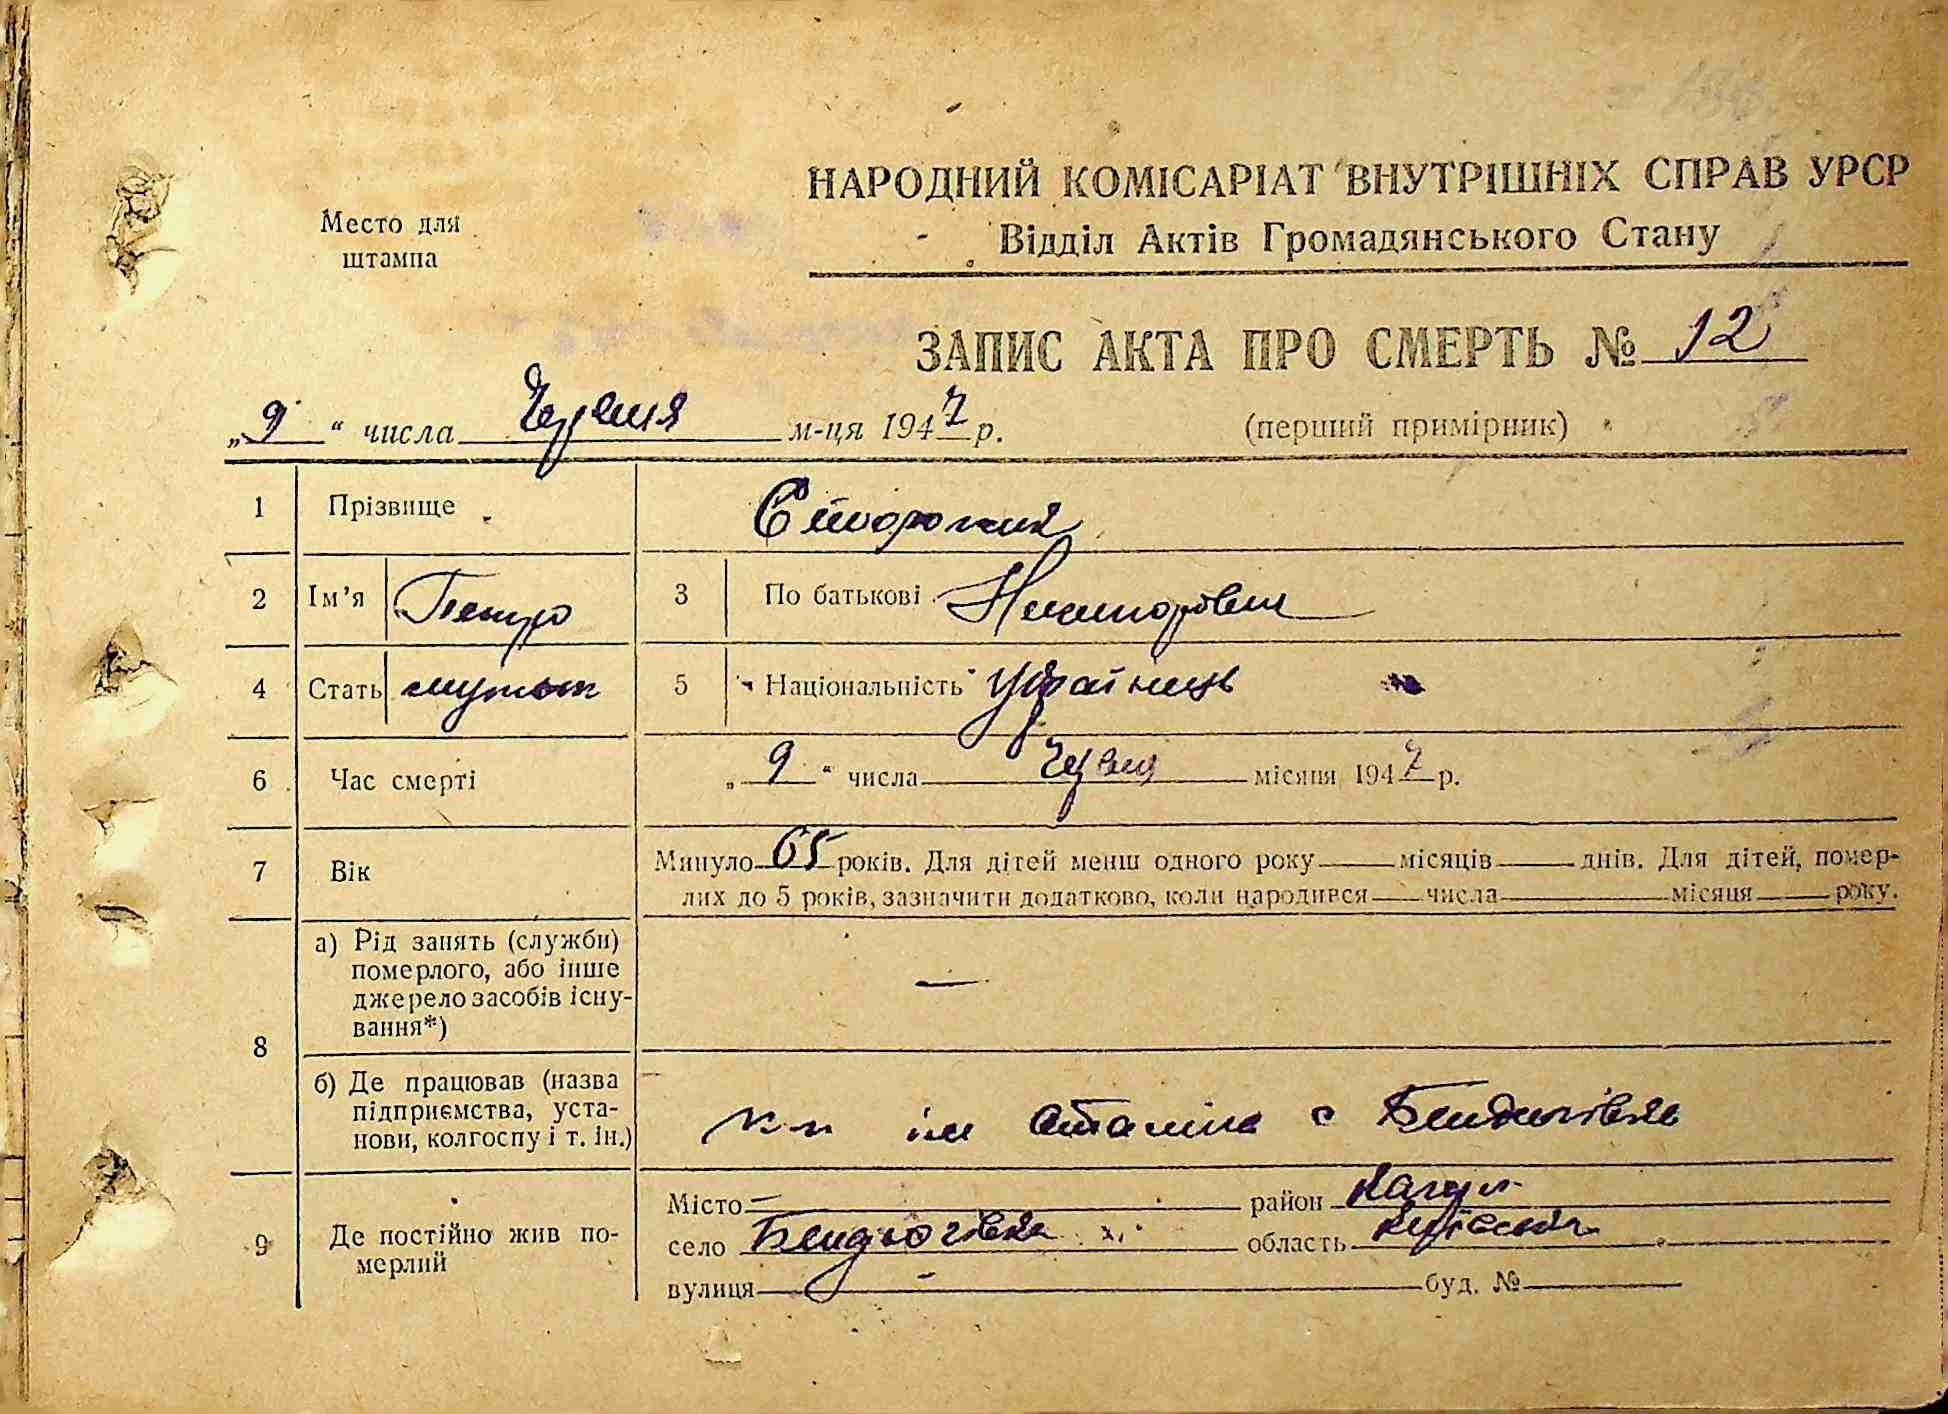 НАРОДНИЙ КОМІСАРІАТ ВНУТРІШНІХ СПРАВ УРСР
Відділ Актів Громадянського Стану
Место для
штампа
ЗАПИС АКТА ПРО СМЕРТЬ № 12
„9“ числа Червня м-ця 1947 р.
(перший примірник)
1 Прізвище
2 Ім’я Петро 3 По батькові Никипорович
4 Стать 5 Національність Українець
6 Час смерті „9“ числа Червня місяця 1947 р.
7 Вік Минуло 65 років. Для дітей менш одного року місяців днів. Для дітей, помер-
лих до 5 років, зазначити додатково, коли народився числа місяця року.
8 а) Рід занять (служби)
померлого, або інше
джерело засобів існу-
вання*) —
б) Де працював (назва
підприємства, уста-
нови, колгоспу і т. ін.)
к-п ім Сталіна с Бендюгівка
9 Де постійно жив по-
мерлий
Місто — район Кагарл.
село Бендюгівка х. область Київська
вулиця — буд. №